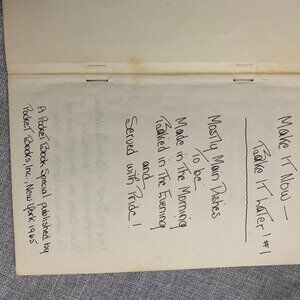 Make It Now —
Bake It Later! #1
Mostly Main Dishes
To be
Made in The Morning
Baked in The Evening
and
Served with Pride!
A Pocket Book Special published by
Pocket Books, Inc., New York 1965